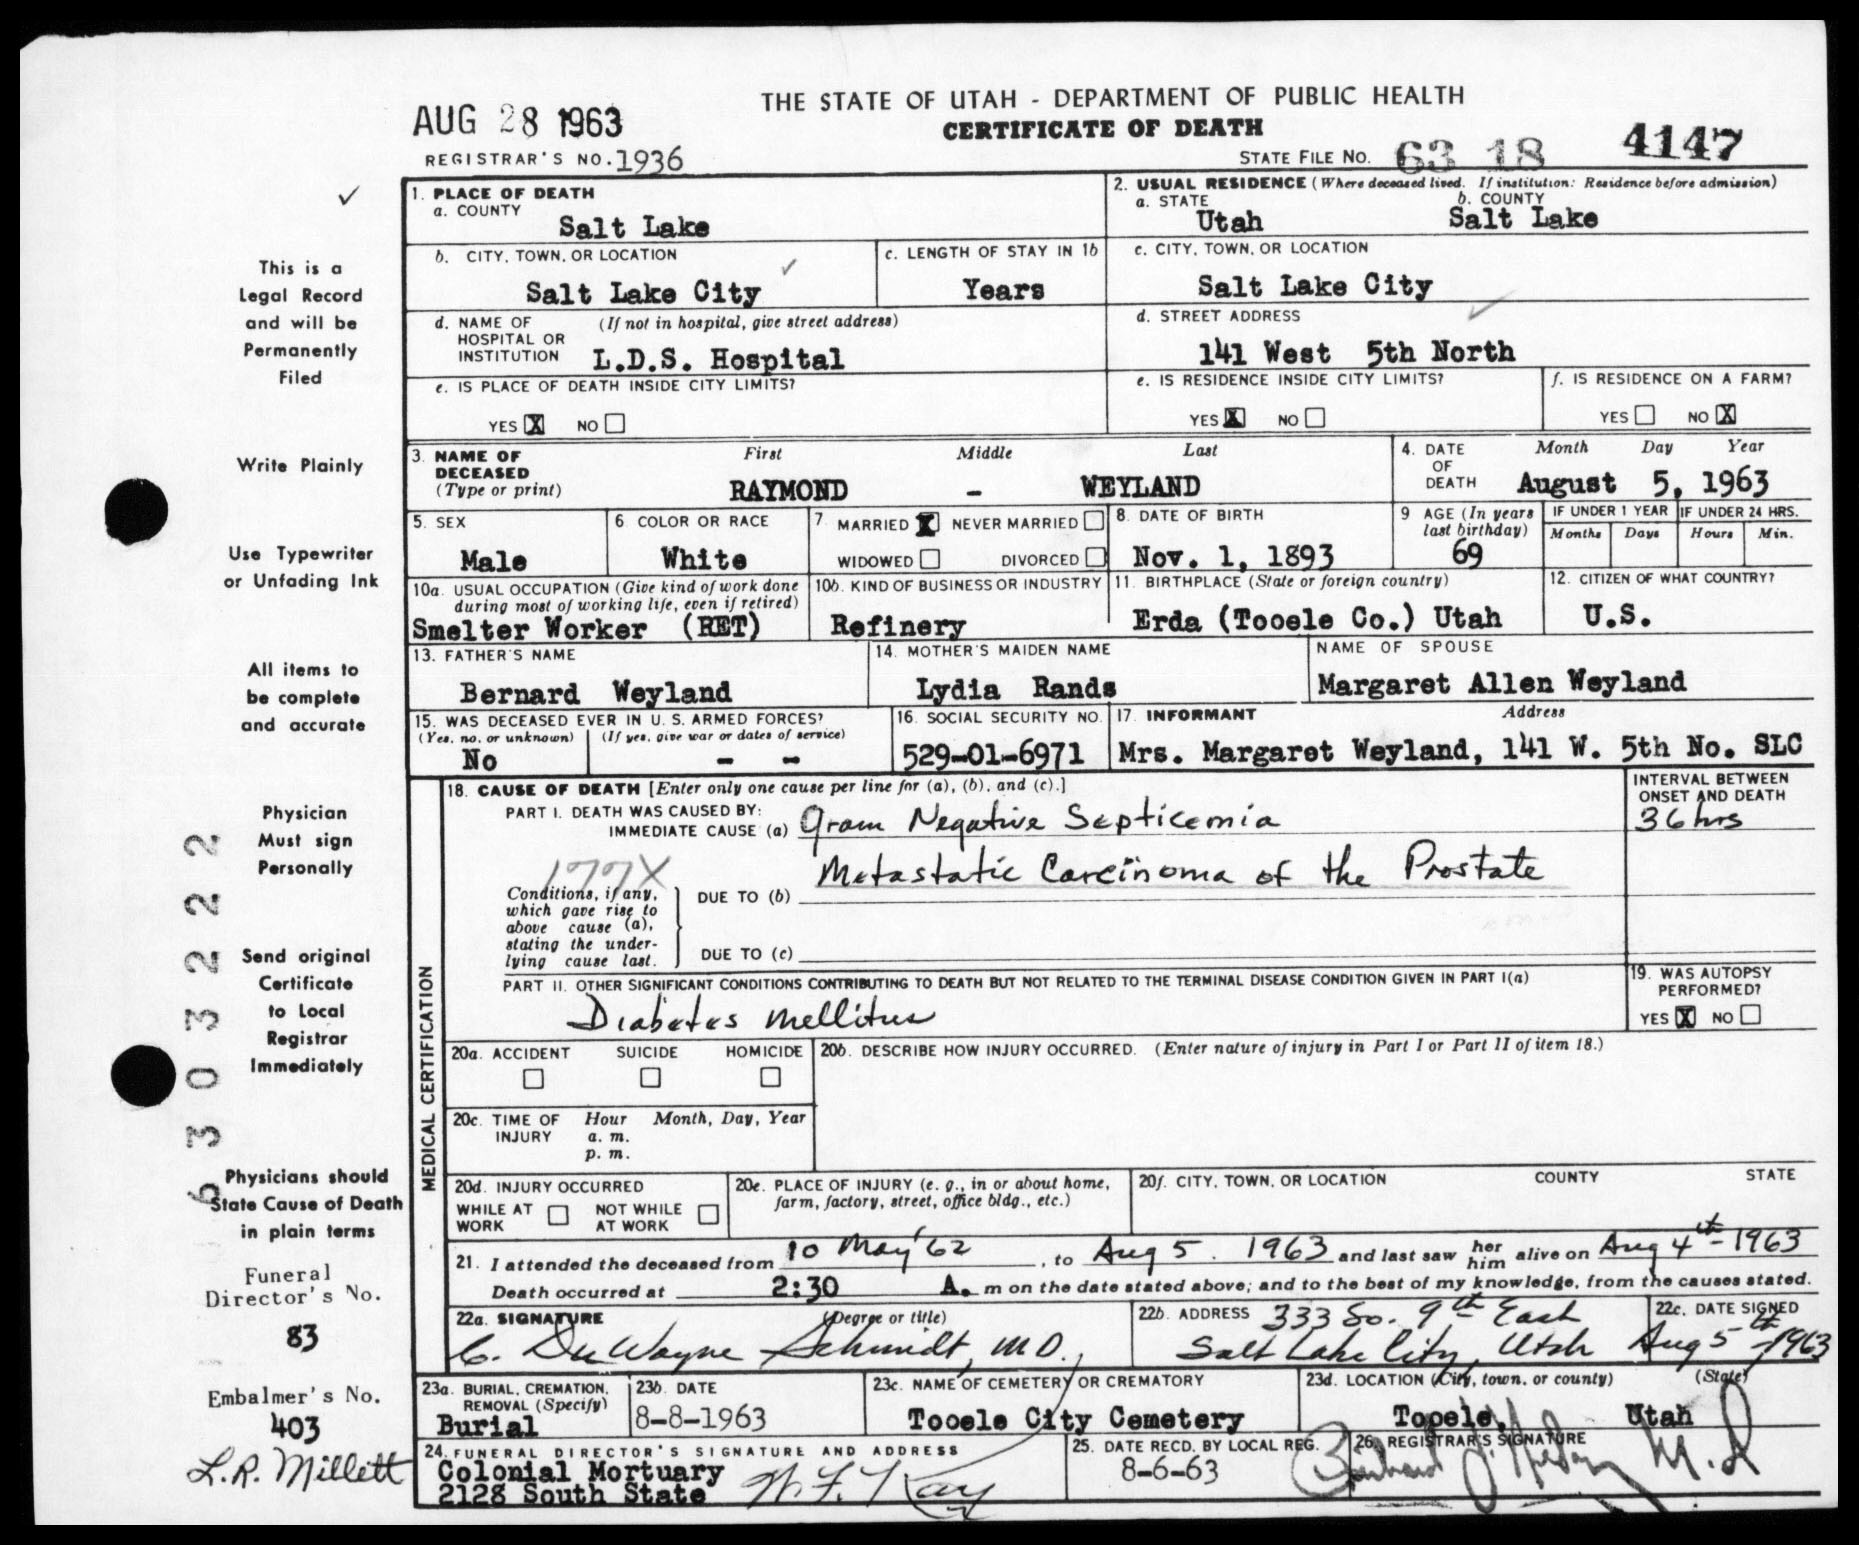 THE STATE OF UTAH - DEPARTMENT OF PUBLIC HEALTH
AUG 28 1963
CERTIFICATE OF DEATH
REGISTRAR'S NO. 1936
STATE FILE NO. 63 18 4147
This is a
Legal Record
and will be
Permanently
Filed
Write Plainly
Use Typewriter
or Unfading Ink
All items to
be complete
and accurate
Physician
Must sign
Personally
Send original
Certificate
to Local
Registrar
Immediately
Physicians should
State Cause of Death
in plain terms
Funeral
Director's No.
83
Embalmer's No.
403
L.R. Millett
6303222
1. PLACE OF DEATH
a. COUNTY
Salt Lake
2. USUAL RESIDENCE (Where deceased lived. If institution: Residence before admission)
a. STATE b. COUNTY
Utah Salt Lake
b. CITY, TOWN, OR LOCATION
Salt Lake City
c. LENGTH OF STAY IN 1b
Years
c. CITY, TOWN, OR LOCATION
Salt Lake City
d. NAME OF (If not in hospital, give street address)
HOSPITAL OR
INSTITUTION L.D.S. Hospital
d. STREET ADDRESS
141 West 5th North
e. IS PLACE OF DEATH INSIDE CITY LIMITS?
YES X NO
e. IS RESIDENCE INSIDE CITY LIMITS?
YES X NO
f. IS RESIDENCE ON A FARM?
YES NO X
3. NAME OF First Middle Last
DECEASED
(Type or print) RAYMOND - WEYLAND
4. DATE Month Day Year
OF
DEATH August 5, 1963
5. SEX
Male
6. COLOR OR RACE
White
7. MARRIED X NEVER MARRIED
WIDOWED DIVORCED
8. DATE OF BIRTH
Nov. 1, 1893
9 AGE (In years
last birthday)
69
IF UNDER 1 YEAR
Months Days
IF UNDER 24 HRS.
Hours Min.
10a. USUAL OCCUPATION (Give kind of work done
during most of working life, even if retired)
Smelter Worker (RET)
10b. KIND OF BUSINESS OR INDUSTRY
Refinery
11. BIRTHPLACE (State or foreign country)
Erda (Tooele Co.) Utah
12. CITIZEN OF WHAT COUNTRY?
U.S.
13. FATHER'S NAME
Bernard Weyland
14. MOTHER'S MAIDEN NAME
Lydia Rands
NAME OF SPOUSE
Margaret Allen Weyland
15. WAS DECEASED EVER IN U. S. ARMED FORCES?
(Yes, no, or unknown) (If yes, give war or dates of service)
No - -
16. SOCIAL SECURITY NO.
529-01-6971
17. INFORMANT Address
Mrs. Margaret Weyland, 141 W. 5th No. SLC
MEDICAL CERTIFICATION
18. CAUSE OF DEATH [Enter only one cause per line for (a), (b), and (c).]
INTERVAL BETWEEN
ONSET AND DEATH
PART I. DEATH WAS CAUSED BY:
IMMEDIATE CAUSE (a) Gram Negative Septicemia
36 hrs
177X
Conditions, if any,
which gave rise to
above cause (a),
stating the under-
lying cause last.
DUE TO (b) Metastatic Carcinoma of the Prostate
DUE TO (c)
PART II. OTHER SIGNIFICANT CONDITIONS CONTRIBUTING TO DEATH BUT NOT RELATED TO THE TERMINAL DISEASE CONDITION GIVEN IN PART I(a)
Diabetes Mellitus
19. WAS AUTOPSY
PERFORMED?
YES X NO
20a. ACCIDENT SUICIDE HOMICIDE
20b. DESCRIBE HOW INJURY OCCURRED. (Enter nature of injury in Part I or Part II of item 18.)
20c. TIME OF Hour Month, Day, Year
INJURY a. m.
p. m.
20d. INJURY OCCURRED
WHILE AT NOT WHILE
WORK AT WORK
20e. PLACE OF INJURY (e. g., in or about home,
farm, factory, street, office bldg., etc.)
20f. CITY, TOWN, OR LOCATION COUNTY STATE
21. I attended the deceased from 10 May '62, to Aug 5. 1963 and last saw her him alive on Aug 4th - 1963
Death occurred at 2:30 A. m on the date stated above; and to the best of my knowledge, from the causes stated.
22a. SIGNATURE (Degree or title)
C. DuWayne Schmidt, M.D.
22b. ADDRESS 333 So. 9th East
Salt Lake City, Utah
22c. DATE SIGNED
Aug 5th, 1963
23a. BURIAL, CREMATION,
REMOVAL (Specify)
Burial
23b. DATE
8-8-1963
23c. NAME OF CEMETERY OR CREMATORY
Tooele City Cemetery
23d. LOCATION (City, town, or county) (State)
Tooele, Utah
24. FUNERAL DIRECTOR'S SIGNATURE AND ADDRESS
Colonial Mortuary
2128 South State
25. DATE RECD. BY LOCAL REG.
8-6-63
26. REGISTRAR'S SIGNATURE
M.D